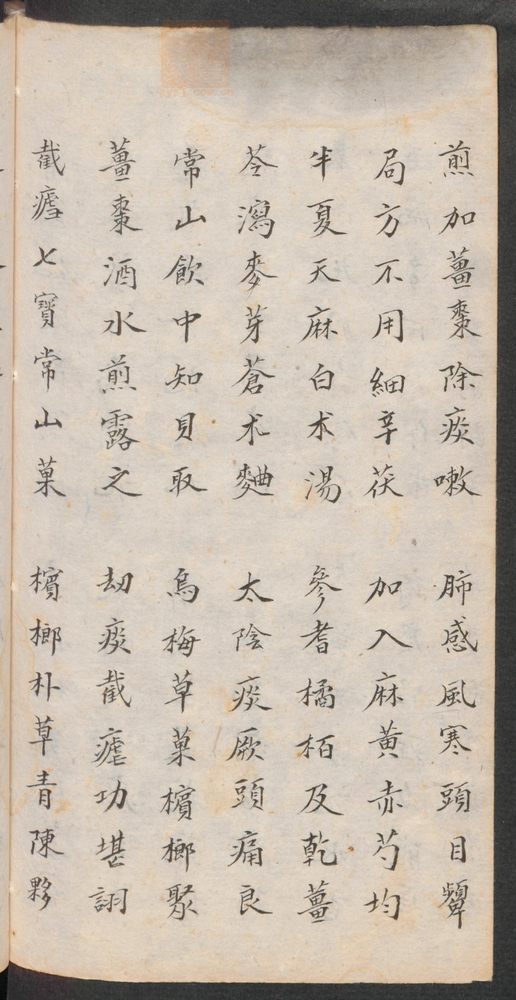 煎加薑棗除痰嗽　肺感風寒頭目顰
局方不用細辛茯　加入麻黃赤芍均
半夏天麻白朮湯　參耆橘柏及乾薑
苓瀉麥芽蒼朮麯　太陰痰厥頭痛良
常山飲中知貝取　烏梅草菓檳榔聚
薑棗酒水煎露之　刼痰截瘧功堪詡
截瘧七寶常山菓　檳榔朴草青陳夥